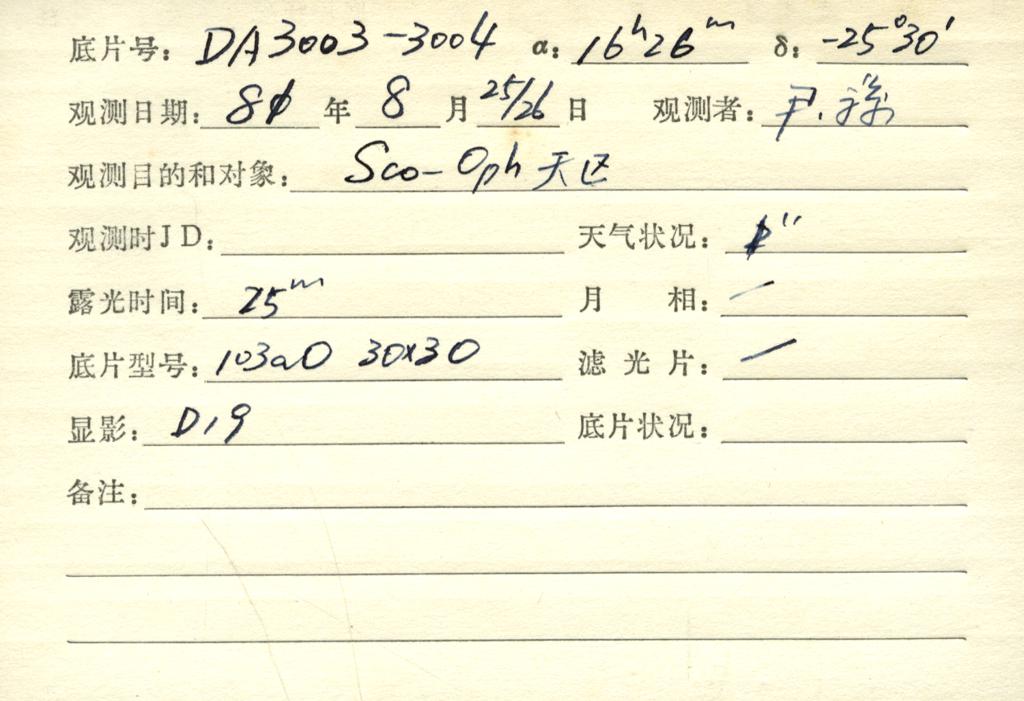 底片号: DA3003-3004 α: 16ʰ26ᵐ δ: -25°30′
观测日期: 年 8 月 25/26 日 观测者: 尹.
观测目的和对象: Sco-Oph 天区
观测时JD: 天气状况:
露光时间: 25ᵐ 月 相: /
底片型号: 103aO 30×30 滤光片: /
显影: D19 底片状况:
备注: